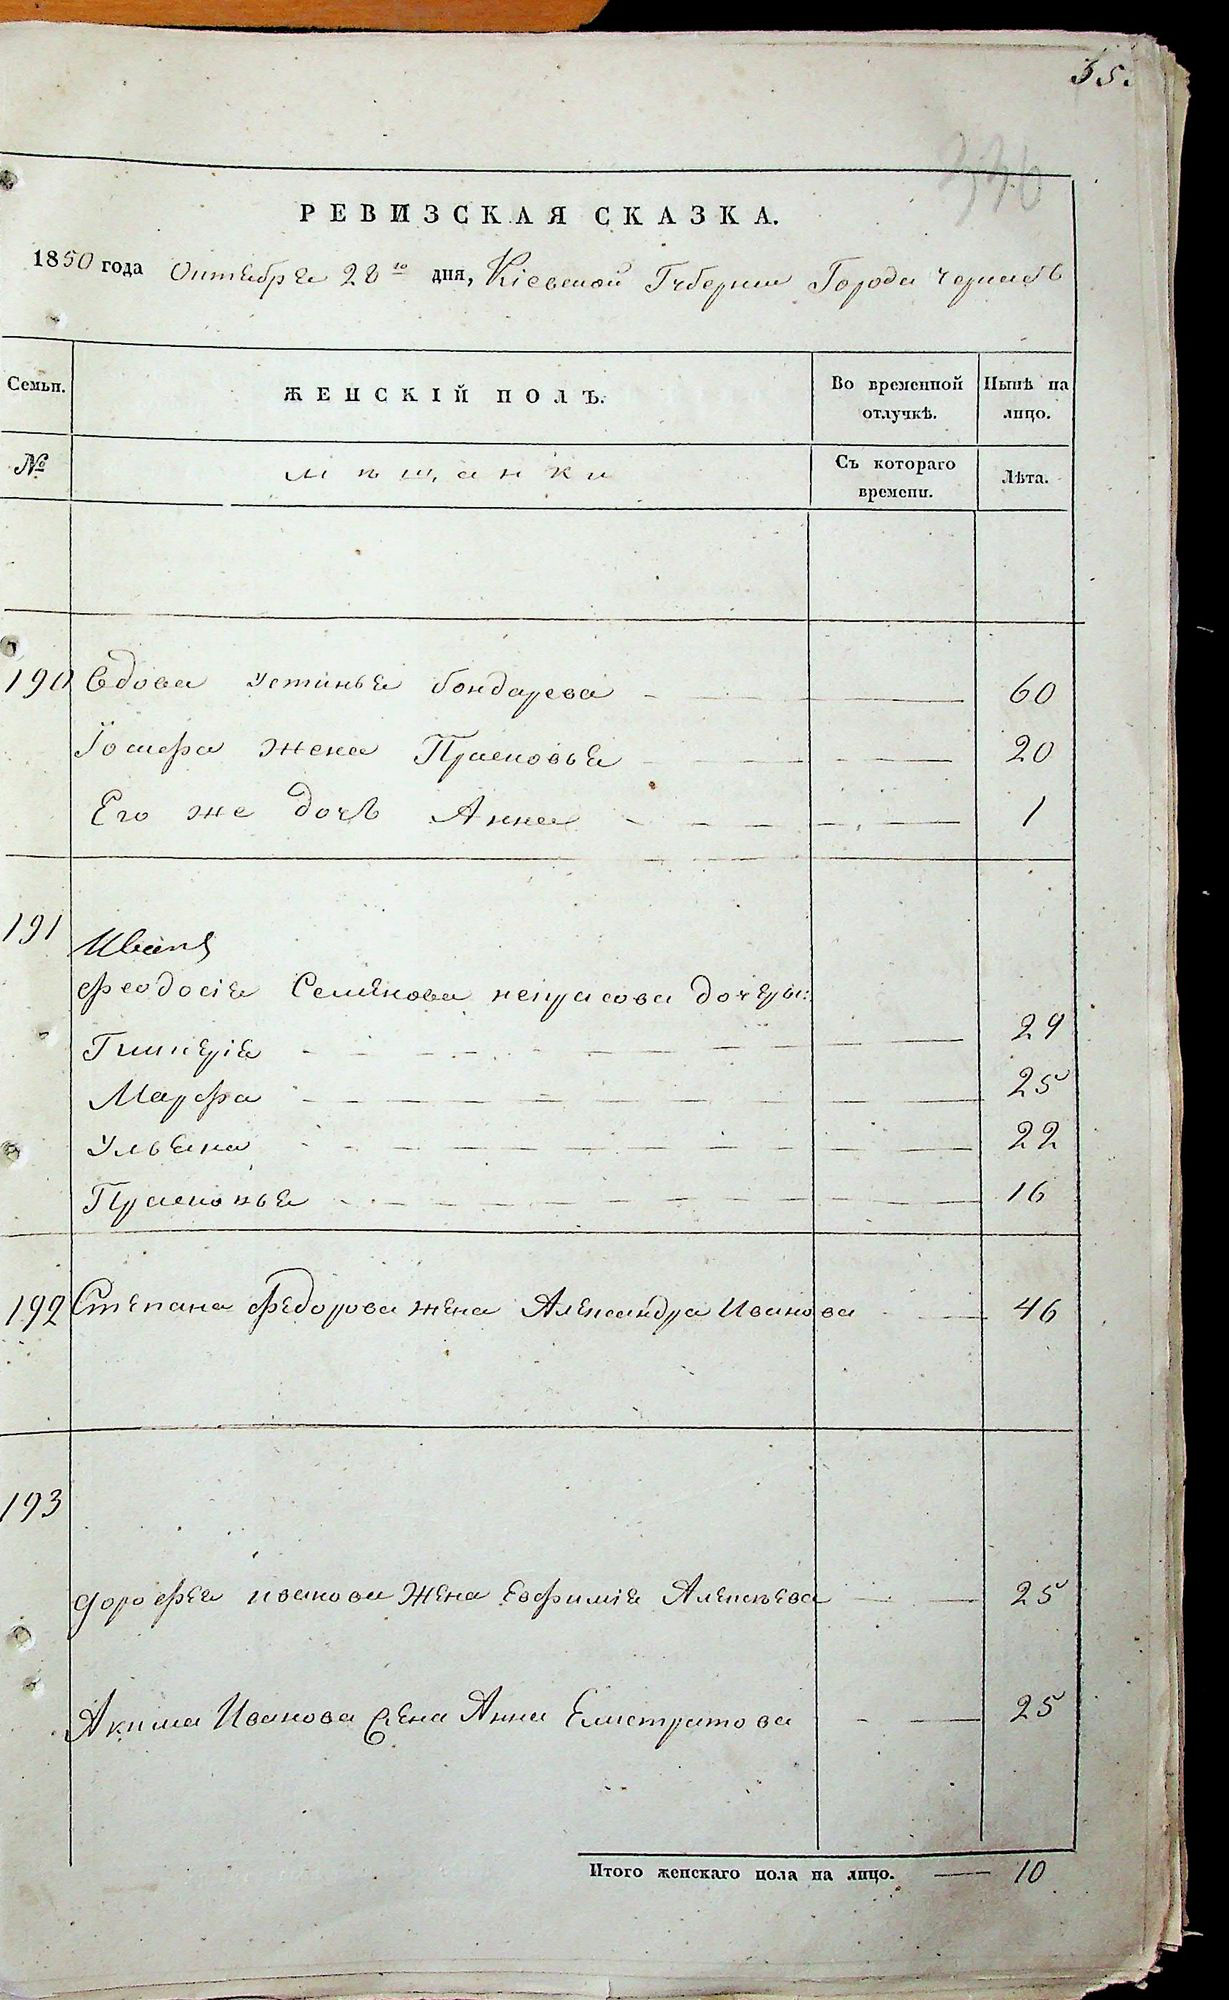 35.
336
РЕВИЗСКАЯ СКАЗКА.
1850 года Октября 28 го дня, Кіевской Губерніи Города Черкасъ
Семьи. ЖЕНСКІЙ ПОЛЪ. Во временной отлучкѣ. Нынѣ на лицо.
№ мѣщанки Съ котораго времени. Лѣта.
190 Вдова Устинья Бондарева 60
Іосифа жена Прасковья 20
Его же дочь Анна 1
191 Иванъ
Феодосія Семенова дочеры:
Гликерія 29
Марфа 25
Ульяна 22
Прасковья 16
192 Степана Федорова жена Александра Иванова 46
193
Дорофея Иванова жена Евфимія Алексѣева 25
Акима Иванова жена Анна Елистратова 25
Итого женскаго пола на лицо. 10